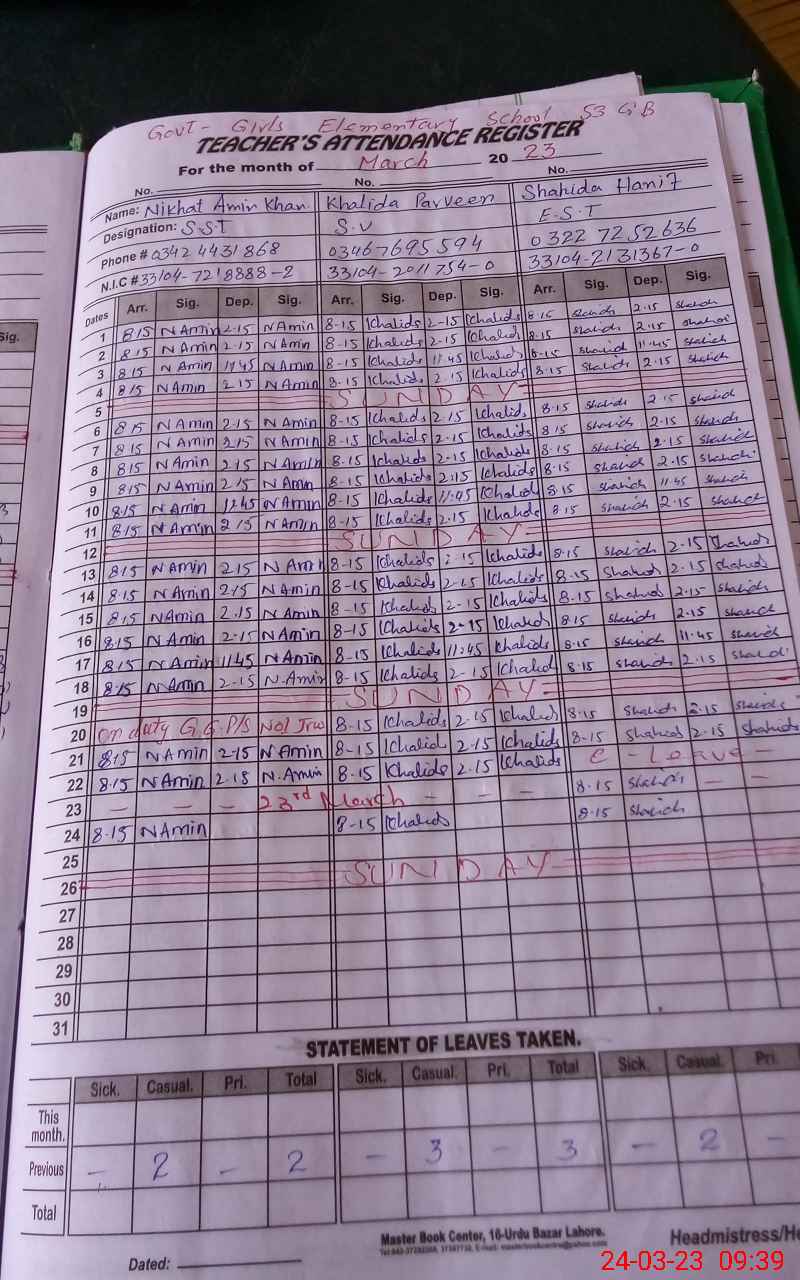 Govt- Girls Elementary School 53 GB
TEACHER'S ATTENDANCE REGISTER
For the month of March 20 23
No. No. No.
Name: Nikhat Amin Khan Khalida Parveen Shahida Hanif
Designation: S.S.T S.V E.S.T
Phone # 0342 4431868 03467695594 0322 7252636
N.I.C # 33104-7218888-2 33104-2011754-0 33104-2131367-0
Dates Arr. Sig. Dep. Sig. Arr. Sig. Dep. Sig. Arr. Sig. Dep. Sig.
1 815 N Amin 2-15 N Amin 8-15 Khalids 2-15 Khalids 8-15 Shahid 2.15 Shahid
2 815 N Amin 2-15 N Amin 8-15 Khalids 2-15 Khalids 8-15 Shahid 2.15 Shahid
3 815 N Amin 1145 N Amin 8-15 Khalids 11:45 Khalids 8-15 Shahid 11.45 Shahid
4 815 N Amin 215 N Amin 8-15 Khalids 2-15 Khalids 8.15 Shahid 2.15 Shahid
5 SUNDAY
6 815 N Amin 2-15 N Amin 8-15 Khalids 2.15 Khalids 8.15 Shahid 2.15 Shahid
7 815 N Amin 215 N Amin 8-15 Khalids 2-15 Khalids 8.15 Shahid 2.15 Shahid
8 815 N Amin 215 N Amin 8-15 Khalids 2-15 Khalids 8.15 Shahid 2.15 Shahid
9 815 N Amin 215 N Amin 8-15 Khalids 2:15 Khalids 8.15 Shahid 2.15 Shahid
10 8.15 N Amin 1145 N Amin 8-15 Khalids 11:45 Khalid 8.15 Shahid 11.45 Shahid
11 8.15 N Amin 215 N Amin 8-15 Khalids 2.15 Khalids 8.15 Shahid 2.15 Shahid
12 SUNDAY
13 815 N Amin 215 N Amin 8-15 Khalids 2-15 Khalids 8.15 Shahid 2.15 Shahid
14 8.15 N Amin 215 N Amin 8-15 Khalids 2-15 Khalids 8.15 Shahid 2.15 Shahid
15 815 N Amin 2.15 N Amin 8-15 Khalid 2-15 Khalids 8.15 Shahid 2.15 Shahid
16 8.15 N Amin 2-15 N Amin 8-15 Khalids 2-15 Khalid 8.15 Shahid 2.15 Shahid
17 8.15 N Amin 1145 N Amin 8-15 Khalids 11:45 Khalids 8.15 Shahid 11.45 Shahid
18 8.15 N Amin 2-15 N.Amin 8-15 Khalids 2-15 Khalid 8.15 Shahid 2.15 Shahid
19 SUNDAY
20 on duty G.G.P/S 8-15 Khalids 2-15 Khalids 8.15 Shahid 2.15 Shahid
21 815 N Amin 2-15 N Amin 8-15 Khalid 2.15 Khalids 8.15 Shahid 2.15 Shahids
22 8.15 N Amin 2-15 N.Amin 8.15 Khalids 2.15 Khalids C - Leave -
23 - - - 23rd March - - - 8.15 Shahid - -
24 8.15 N Amin 8-15 Khalids 8.15 Shahid
25
26 SUNDAY
27
28
29
30
31
STATEMENT OF LEAVES TAKEN.
Sick. Casual. Pri. Total Sick. Casual. Pri. Total Sick. Casual. Pri.
This month.
Previous - 2 - 2 - 3 - 3 - 2 -
Total
Master Book Center, 16-Urdu Bazar Lahore.
Dated: Headmistress/He
24-03-23 09:39